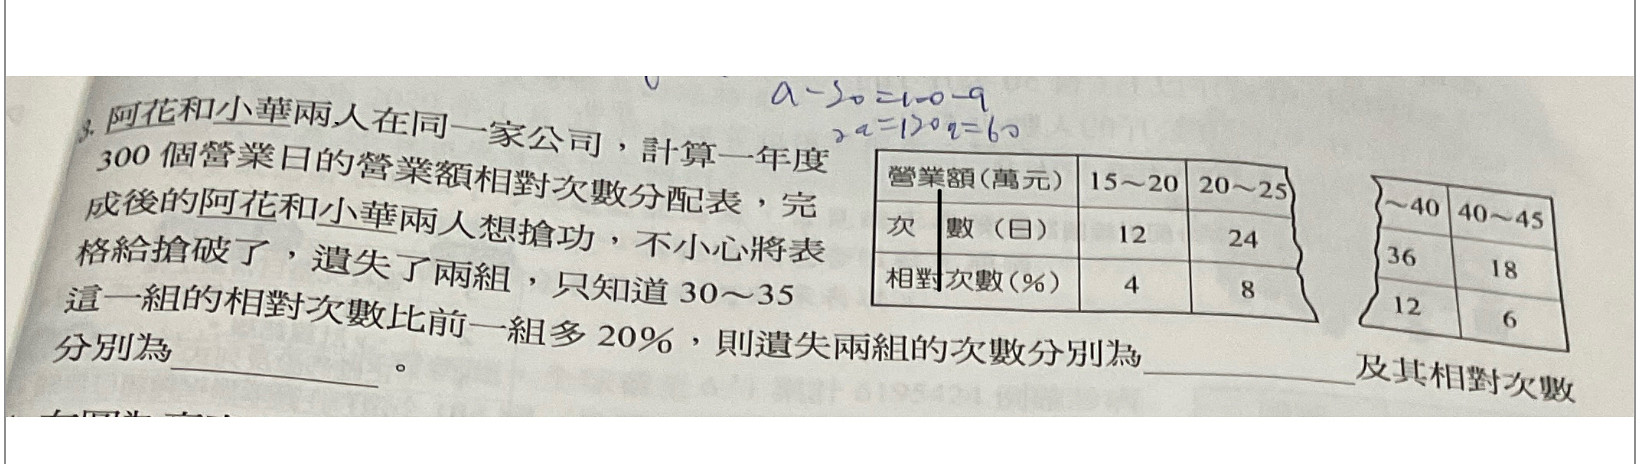 a-20=120-a
2a=120 a=60
3. 阿花和小華兩人在同一家公司，計算一年度
300 個營業日的營業額相對次數分配表，完
成後的阿花和小華兩人想搶功，不小心將表
格給搶破了，遺失了兩組，只知道 30～35
這一組的相對次數比前一組多 20%，則遺失兩組的次數分別為＿＿＿＿及其相對次數
分別為＿＿＿＿。
營業額(萬元) 15～20 20～25 ～40 40～45
次 數(日) 12 24 36 18
相對次數(%) 4 8 12 6